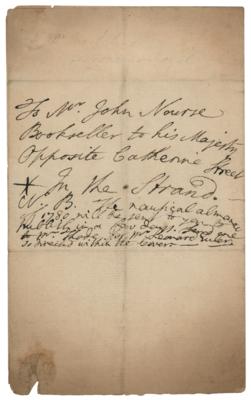 To Mr. John Nourse
Bookseller to his Majesty
Opposite Catherine Street
X In the Strand.
N. B. The nautical almanac
of 1780 will be sent to you to
publish in a few days. Send one
to Mr.
so directed within the Cover